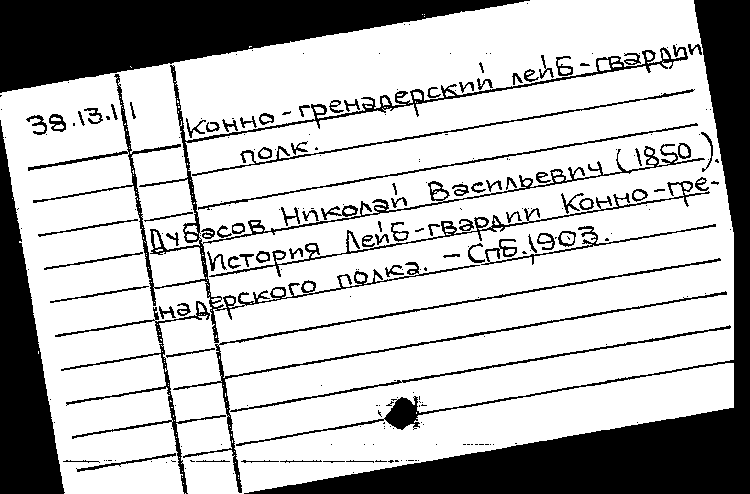 38.13.1.1 Конно-гренадерский лейб-гвардии
полк.
Дубасов, Николай Васильевич (1850).
История Лейб-гвардии Конно-гре-
надерского полка. – Спб., 1903.